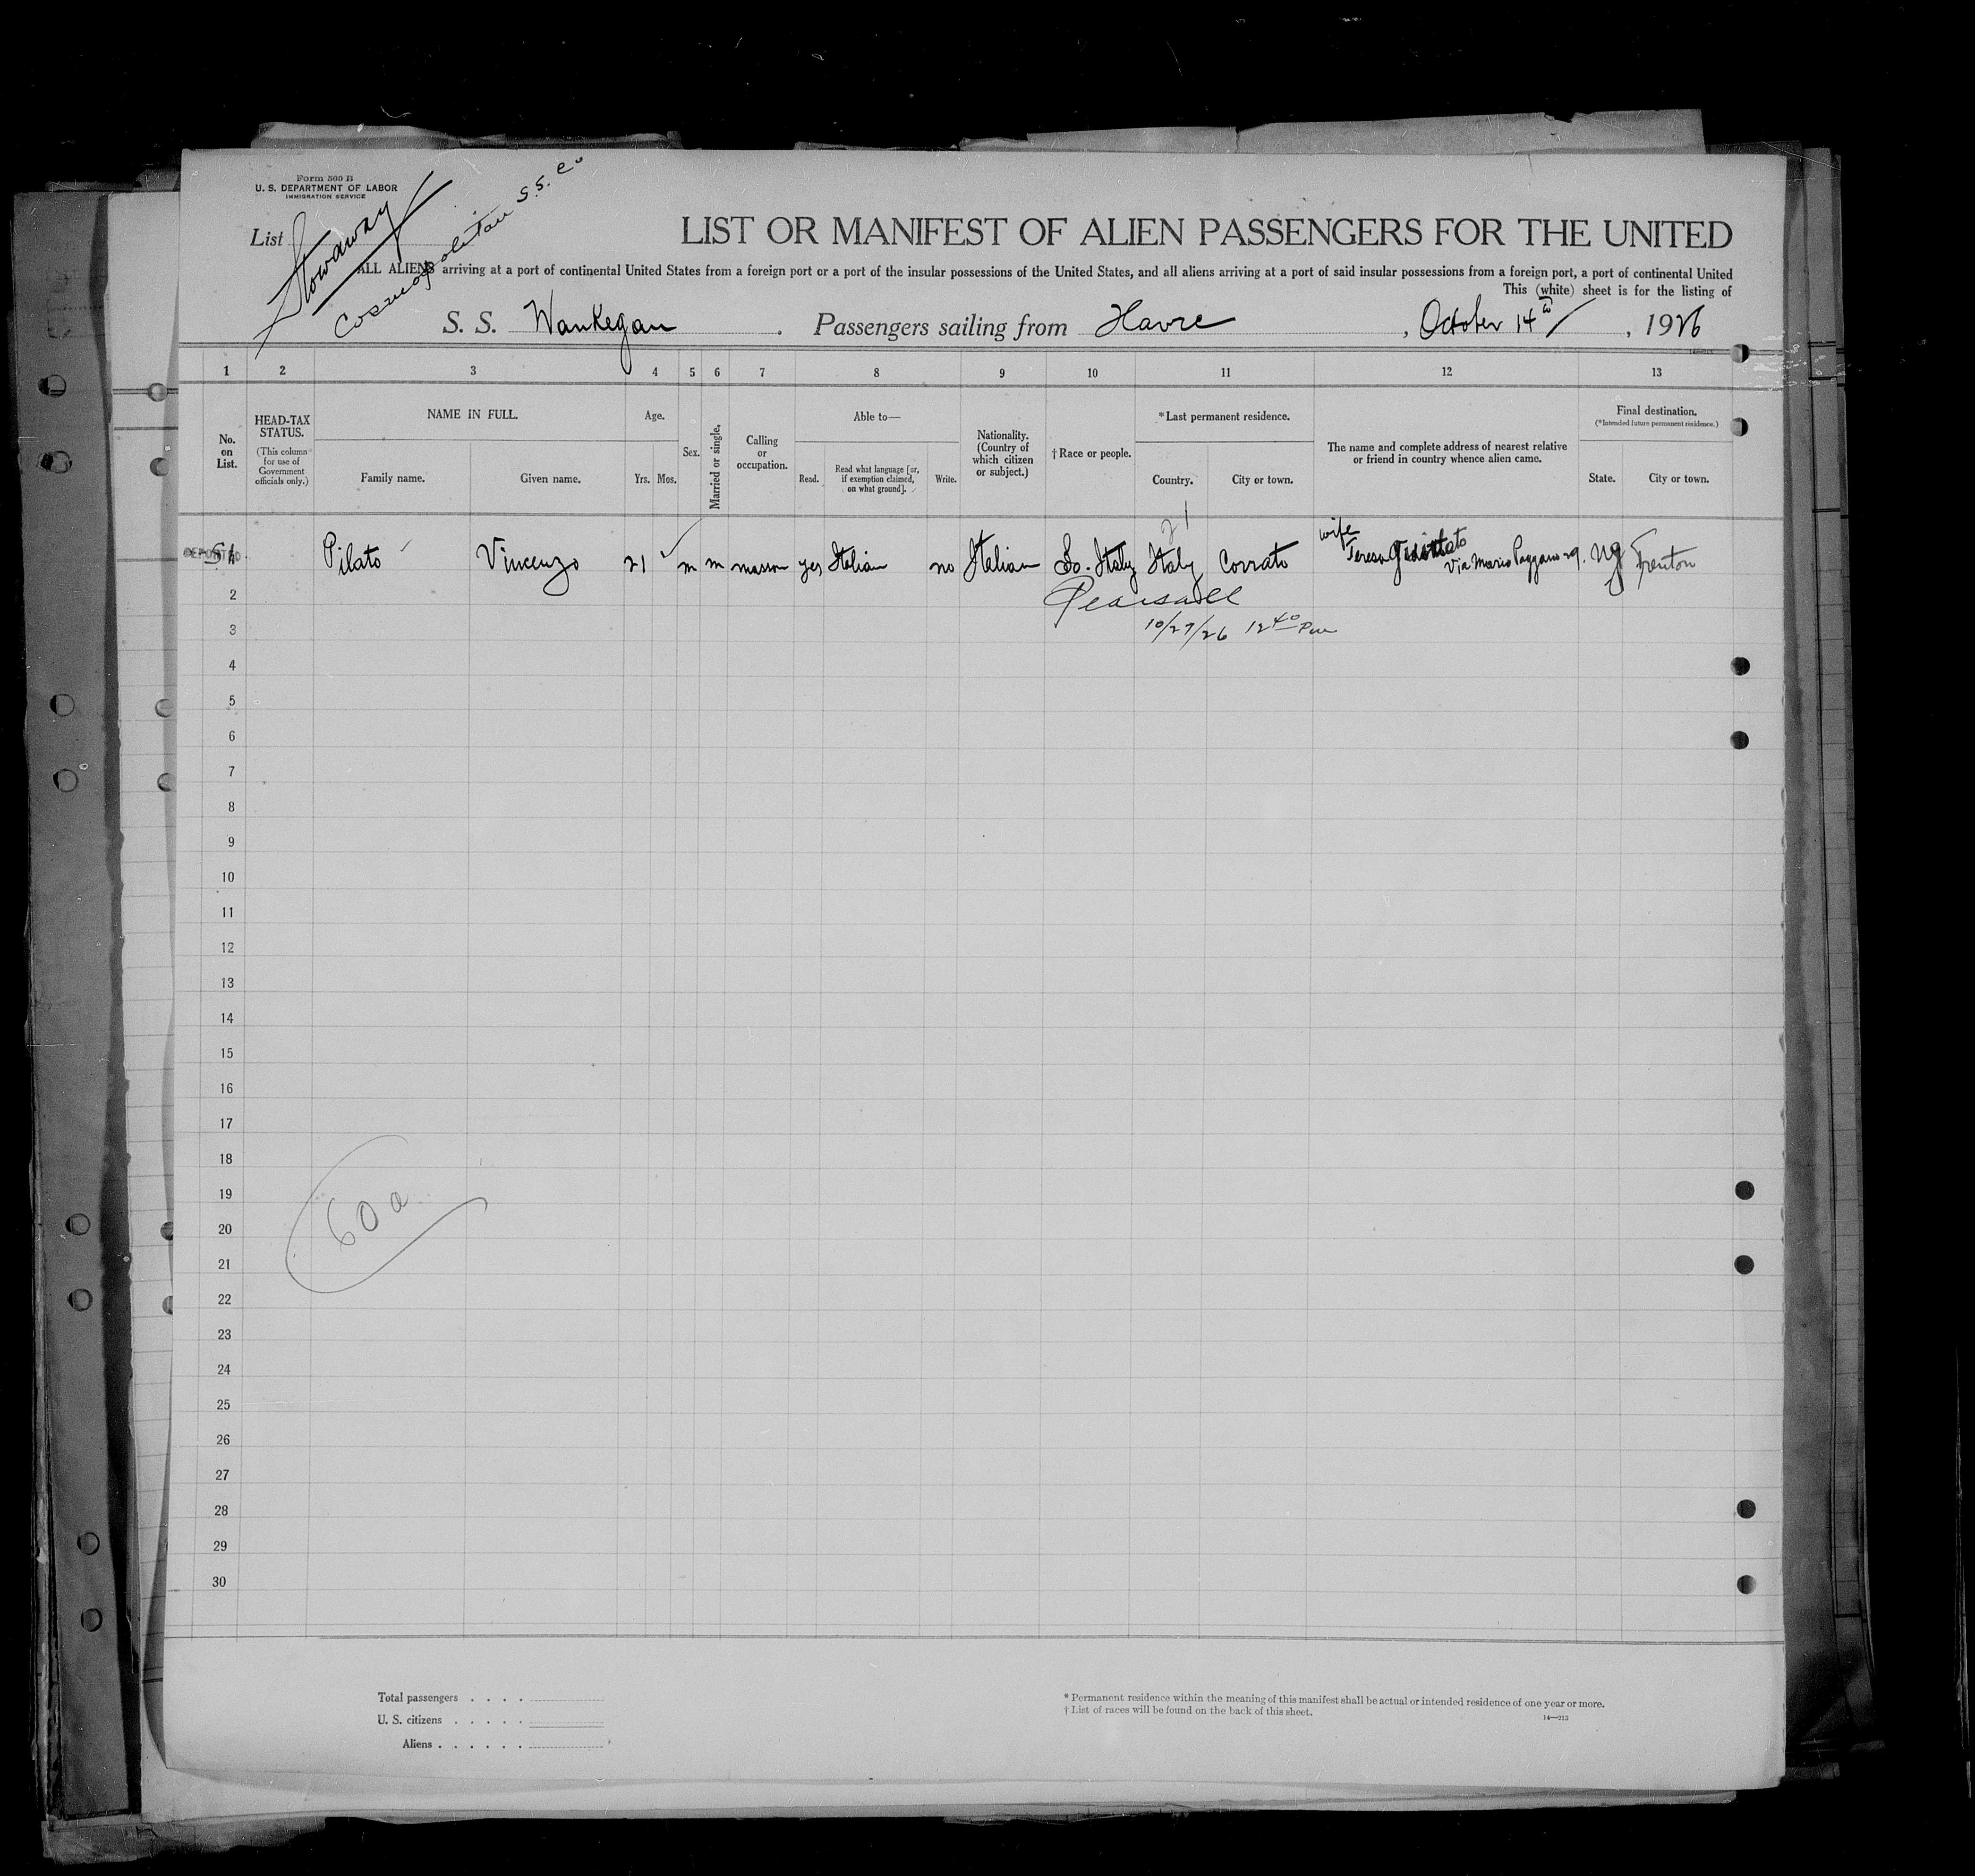 Form 500 B
U. S. DEPARTMENT OF LABOR
IMMIGRATION SERVICE
List Stowaway
Cosmopolitan S.S. Co
LIST OR MANIFEST OF ALIEN PASSENGERS FOR THE UNITED
ALL ALIENS arriving at a port of continental United States from a foreign port or a port of the insular possessions of the United States, and all aliens arriving at a port of said insular possessions from a foreign port, a port of continental United
This (white) sheet is for the listing of
S. S. Waukegan . Passengers sailing from Havre , October 14th , 1926
1 2 3 4 5 6 7 8 9 10 11 12 13
No. on List.
HEAD-TAX STATUS.
(This column for use of Government officials only.)
NAME IN FULL.
Family name. Given name.
Age.
Yrs. Mos.
Sex.
Married or single.
Calling or occupation.
Able to—
Read. Read what language [or, if exemption claimed, on what ground]. Write.
Nationality. (Country of which citizen or subject.)
† Race or people.
* Last permanent residence.
Country. City or town.
The name and complete address of nearest relative or friend in country whence alien came.
Final destination.
(* Intended future permanent residence.)
State. City or town.
21
DEPORTED Pilato Vincenzo 21 m m mason yes Italian no Italian So. Italy Italy Corrato wife Teresa Via Mario Paggano 29. NJ Trenton
2 Pearsall
3 10/27/26 12 40 Pm
4
5
6
7
8
9
10
11
12
13
14
15
16
17
18
19
60 a
20
21
22
23
24
25
26
27
28
29
30
Total passengers . . . .
U. S. citizens . . . . .
Aliens . . . . . .
* Permanent residence within the meaning of this manifest shall be actual or intended residence of one year or more.
† List of races will be found on the back of this sheet.
14—213